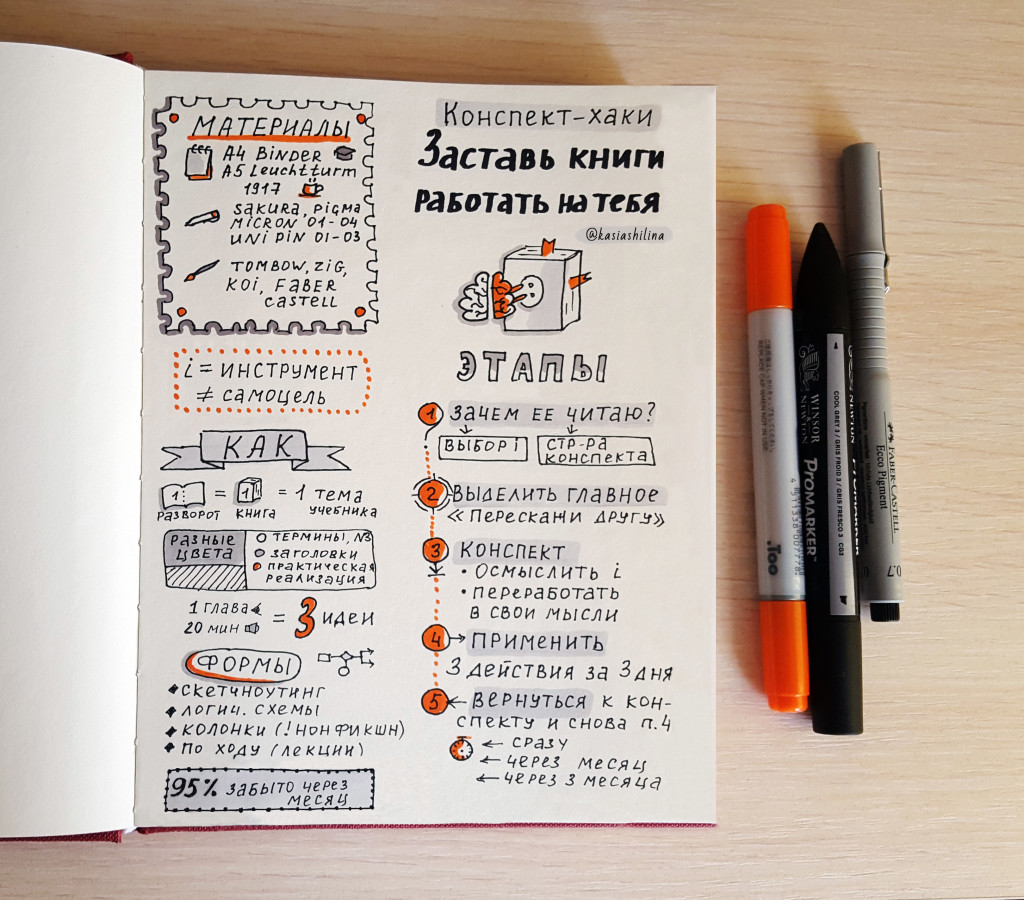 МАТЕРИАЛЫ
A4 BINDER
A5 Leuchtturm
1917
SAKURA, PIGMA
MICRON 01-04
UNI PIN 01-03
TOMBOW, ZIG,
KOI, FABER
CASTELL
i = ИНСТРУМЕНТ
≠ САМОЦЕЛЬ
КАК
1 = 1 = 1 ТЕМА
РАЗВОРОТ КНИГА УЧЕБНИКА
РАЗНЫЕ
ЦВЕТА
ТЕРМИНЫ, №
ЗАГОЛОВКИ
ПРАКТИЧЕСКАЯ
РЕАЛИЗАЦИЯ
1 ГЛАВА
20 МИН = 3 ИДЕИ
ФОРМЫ
СКЕТЧНОУТИНГ
ЛОГИЧ. СХЕМЫ
КОЛОНКИ (!НОНФИКШН)
ПО ХОДУ (ЛЕКЦИИ)
95% ЗАБЫТО ЧЕРЕЗ
МЕСЯЦ
Конспект-хаки
Заставь книги
работать на тебя
@kasiashilina
ЭТАПЫ
1 ЗАЧЕМ ЕЕ ЧИТАЮ?
ВЫБОР i СТР-РА
КОНСПЕКТА
2 ВЫДЕЛИТЬ ГЛАВНОЕ
«ПЕРЕСКАЖИ ДРУГУ»
3 КОНСПЕКТ
• ОСМЫСЛИТЬ i
• ПЕРЕРАБОТАТЬ
В СВОИ МЫСЛИ
4 → ПРИМЕНИТЬ
3 ДЕЙСТВИЯ ЗА 3 ДНЯ
5 ← ВЕРНУТЬСЯ К КОН-
СПЕКТУ И СНОВА П.4
← СРАЗУ
← ЧЕРЕЗ МЕСЯЦ
← ЧЕРЕЗ 3 МЕСЯЦА
REPLACE CAP WHEN NOT IN USE.
.Too
WINSOR
& NEWTON
PROMARKER™
COOL GREY 3 / GRIS FROID 3 / GRIS FRESCO 3 CG3
FABER-CASTELL
Ecco Pigment
0.7